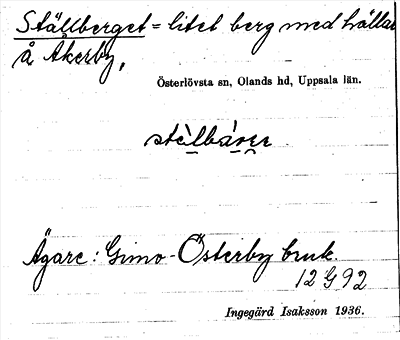 Ställberget = litet berg med hällar
å Åkerby,
Österlövsta sn, Olands hd, Uppsala län.
stèlbárer
Ägare: Gimo-Österby bruk.
12 G 92
Ingegärd Isaksson 1936.